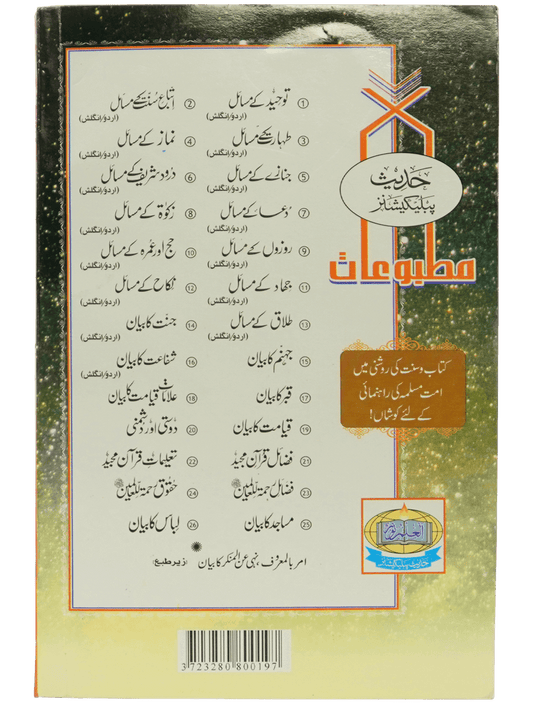 ① توحید کے مسائل (اردو/انگلش)
② اتباع سنت کے مسائل (اردو/انگلش)
③ طہارت کے مسائل (اردو/انگلش)
④ نماز کے مسائل (اردو/انگلش)
⑤ جنازے کے مسائل (اردو/انگلش)
⑥ درود شریف کے مسائل (اردو/انگلش)
⑦ دُعا کے مسائل (اردو/انگلش)
⑧ زکوٰۃ کے مسائل (اردو/انگلش)
⑨ روزوں کے مسائل (اردو/انگلش)
⑩ حج اور عمرہ کے مسائل (اردو/انگلش)
⑪ جہاد کے مسائل (اردو/انگلش)
⑫ نکاح کے مسائل (اردو/انگلش)
⑬ طلاق کے مسائل (اردو/انگلش)
⑭ جنت کا بیان (اردو/انگلش)
⑮ جہنم کا بیان
⑯ شفاعت کا بیان (اردو/انگلش)
⑰ قبر کا بیان
⑱ علاماتِ قیامت کا بیان
⑲ قیامت کا بیان
⑳ دوستی اور دشمنی
㉑ فضائل قرآن مجید
㉒ تعلیمات قرآن مجید
㉓ فضائل رحمۃ للعالمین ﷺ
㉔ حقوق رحمۃ للعالمین ﷺ
㉕ مساجد کا بیان
㉖ لباس کا بیان
امر بالمعروف، نہی عن المنکر کا بیان (زیر طبع)
حدیث
پبلیکیشنز
مطبوعات
کتاب و سنت کی روشنی میں
امت مسلمہ کی راہنمائی
کے لئے کوشاں!
العلم نور
3723280 800197